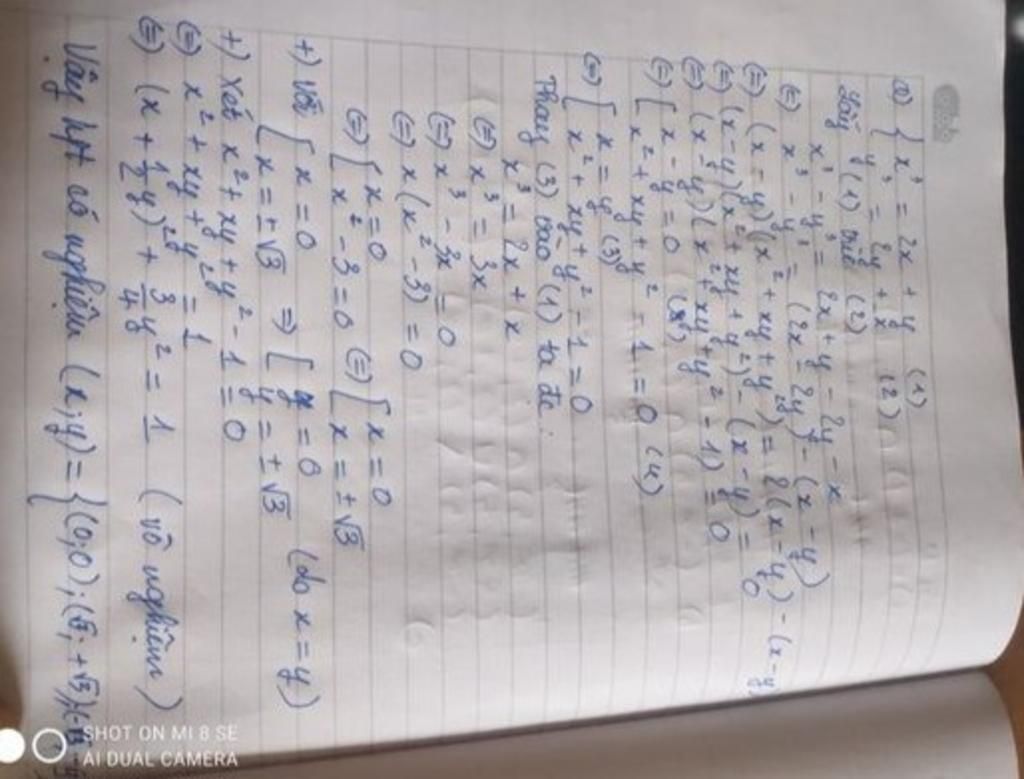 a) { x³ = 2x + y (1)
y³ = 2y + x (2)
Lấy (1) trừ (2)
x³ - y³ = 2x + y - 2y - x
(=) x³ - y³ = (2x - 2y) - (x - y)
(=) (x - y)(x² + xy + y²) = 2(x - y) - (x - y)
(=) (x - y)(x² + xy + y²) - (x - y) = 0
(=) (x - y)(x² + xy + y² - 1) = 0
(=) [ x - y = 0 (3)
x² + xy + y² - 1 = 0 (4)
(=) [ x = y (3)
x² + xy + y² - 1 = 0
Thay (3) vào (1) ta đc :
x³ = 2x + x
(=) x³ = 3x
(=) x³ - 3x = 0
(=) x(x² - 3) = 0
(=) [ x = 0 (=) [ x = 0
x² - 3 = 0 x = ±√3
+) Với [ x = 0 => [ y = 0 (do x = y)
x = ±√3 y = ±√3
+) Xét x² + xy + y² - 1 = 0
(=) x² + xy + y² = 1
(=) (x + 1/2 y)² + 3/4 y² = 1 (vô nghiệm)
Vậy hpt có nghiệm (x;y) = {(0;0);(√3; +√3);(-√3
SHOT ON MI 8 SE
AI DUAL CAMERA